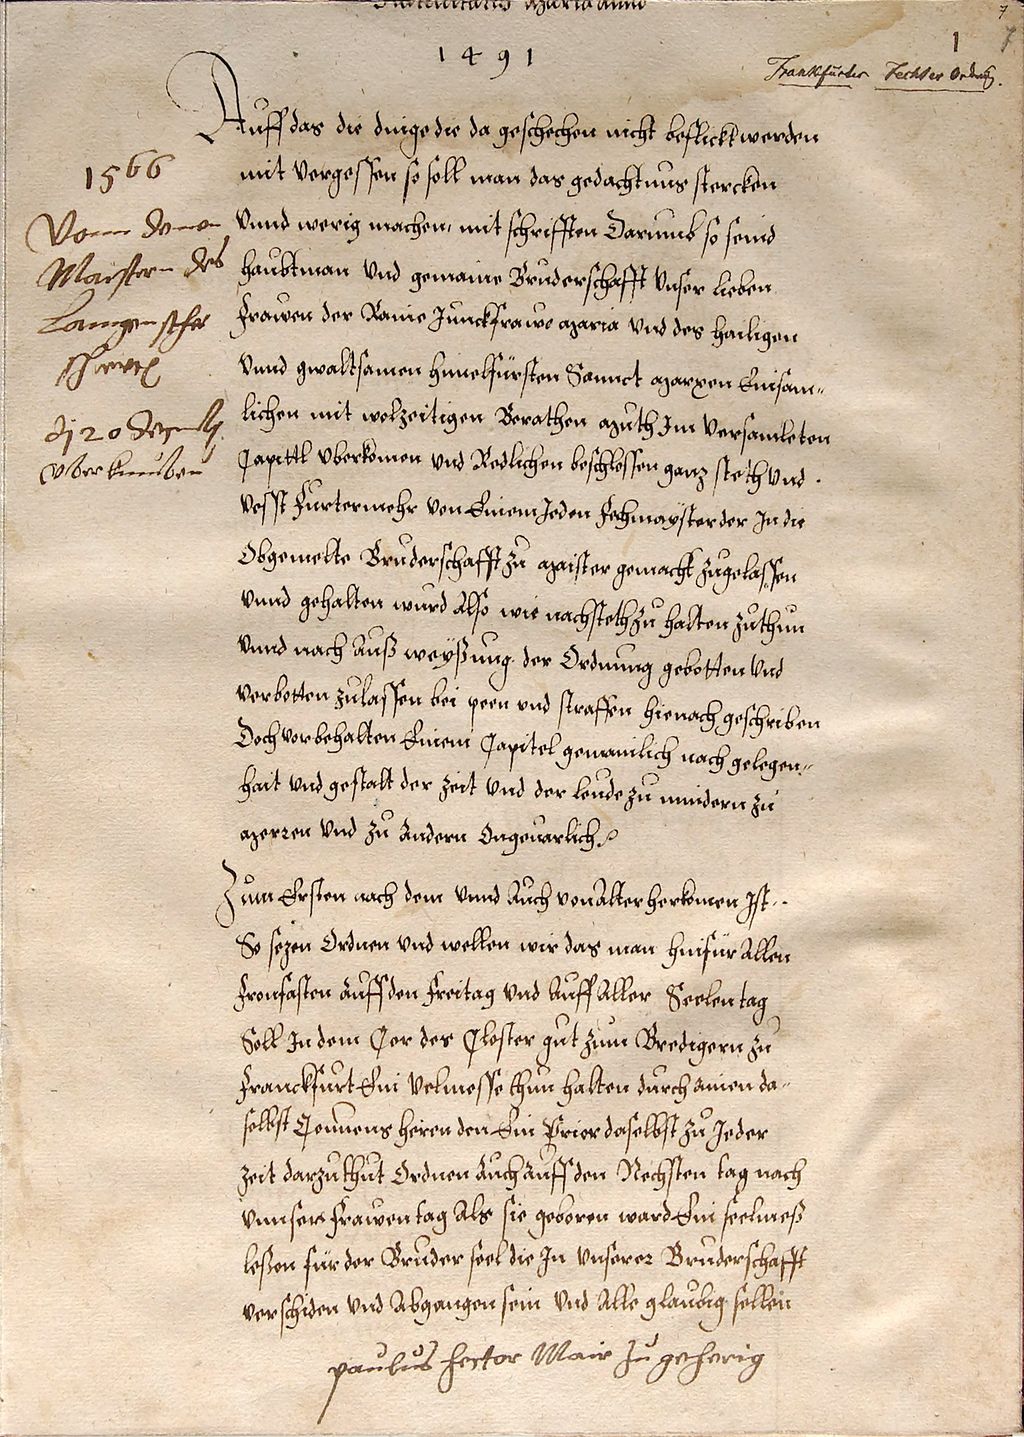 1491
1
7
7
Franckfurter Fechter Ordnung.
Auff das die dinge die da geschechen nicht befleckt werden
mit vergessen so soll man das gedachtnus stercken
vnnd werig machen, mit schrifften Darumb so seind
haubtman vnd gemaine Bruderschafft vnser lieben
Frawen der Raine Junckfraw Maria vnd des hailigen
vnnd gwaltsamen himelfürsten Sannct Marxen Einsam-
lichen mit wolzeitigen Berathen Muth Im versamleten
Capittl vberkomen vnd Redlichen beschlossen ganz steth vnd
vesst Furtermehr von Einem Jeden Fechmayster der In die
Obgemelte Bruderschafft zu Maister gemacht zugelassen
vnnd gehalten wurd Also wie nachsteth zu halten zuthun
vnnd nach Auß weyßung der Ordnung gebotten vnd
verbotten zulassen bei peen vnd straffen hienach geschriben
Doch vorbehalten Einem Capitel gemainlich nach gelegen-
hait vnd gestalt der zeit vnd der leude zu mindern zu
Merren vnd zu Andern Ongeuarlich.
Zum Ersten nach dem vnnd Auch von Alter herkomen Ist.
So sezen Ordnen vnd wellen wir das man hinfür Allen
Fronfasten Auff den Freitag vnd Auff Aller Seelen tag
Soll In dem Cor des Closter gut zum Bredigern zu
Franckfurt Ein velmesse thun halten durch ainen da-
selbst Conuens heren den Ein Prior daselbst zu Jeder
zeit darzu thut Ordnen Auch Auff den Nechsten tag nach
vnnser Frawen tag Als sie geboren ward Ein seelmeß
leßen für der Bruder seel die In vnserer Bruderschafft
verschiden vnd Abgangen sein vnd Alle glaubig sellen
paulus hector Mair zu geherig
1566
Vonn denen
Maistern des
Langen schw
schwerts
20
vberkumben